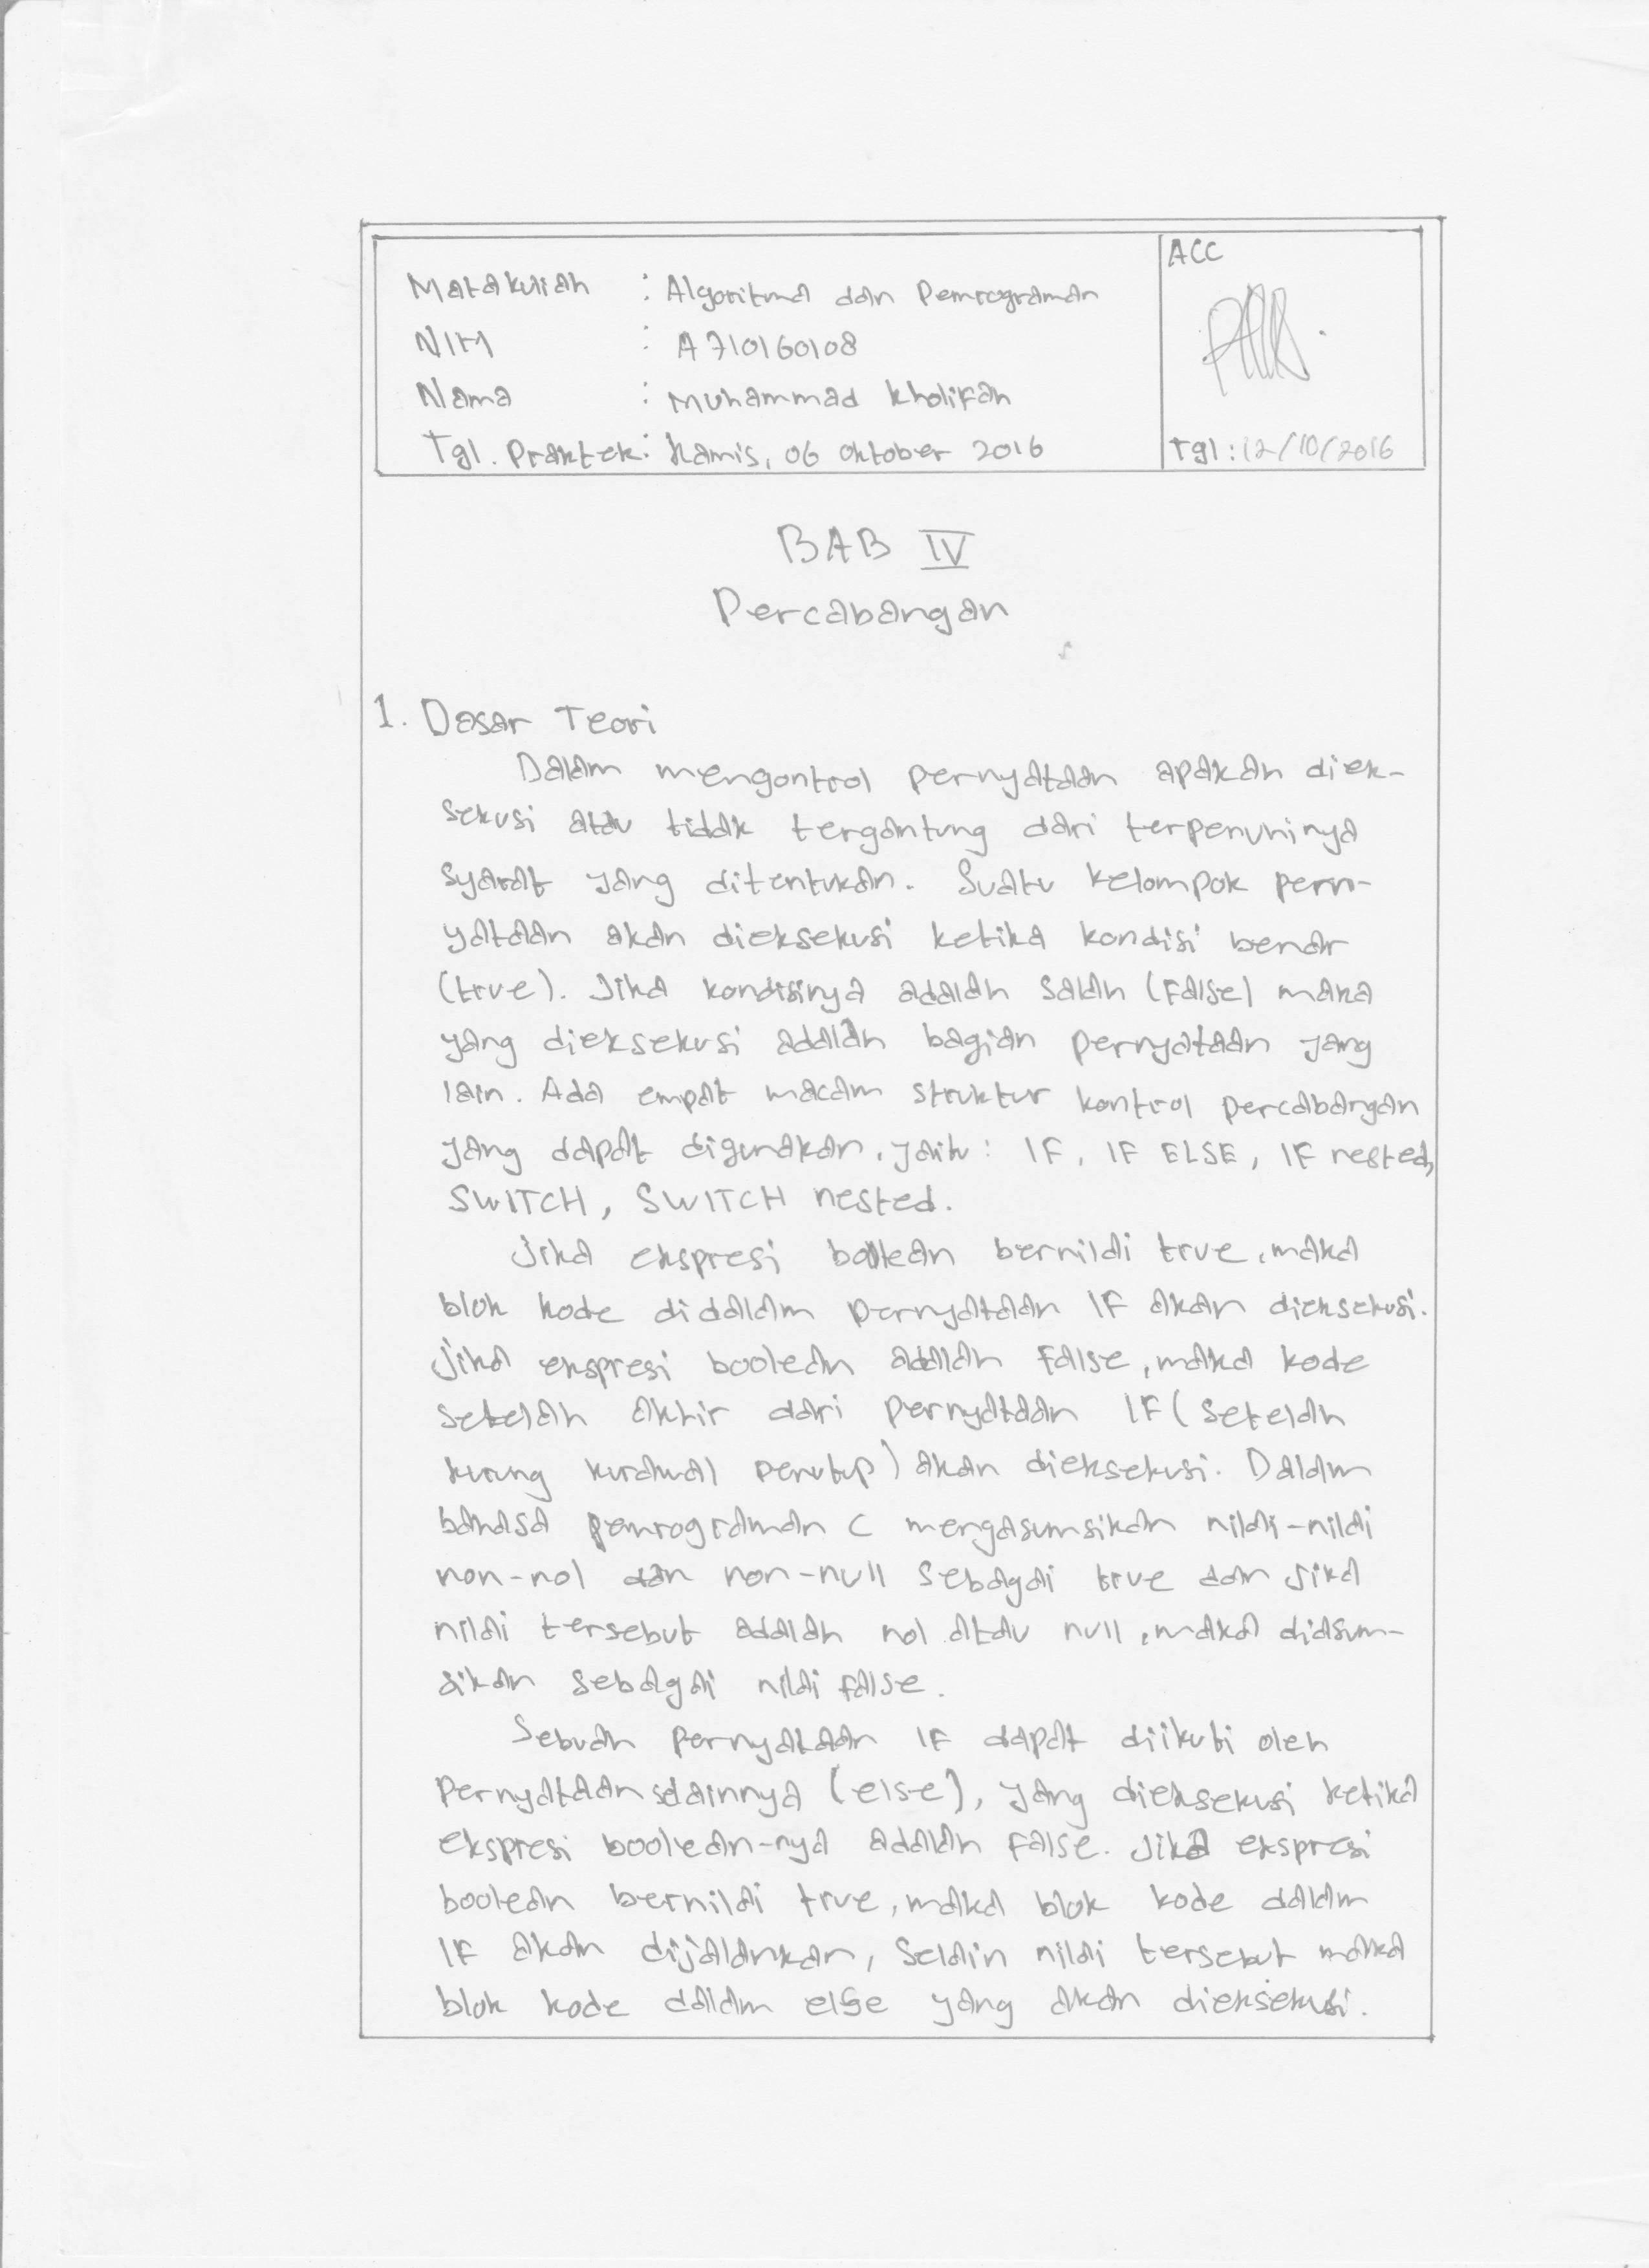 ACC
Matakuliah : Algoritma dan Pemrograman
NIM : A710160108
Nama : Muhammad Kholifah
Tgl. Praktek : Kamis, 06 Oktober 2016
Tgl : 12/10/2016
BAB IV
Percabangan
1. Dasar Teori
Dalam mengontrol pernyataan apakah diek-
sekusi atau tidak tergantung dari terpenuhinya
syarat yang ditentukan. Suatu kelompok pern-
yataan akan dieksekusi ketika kondisi benar
(true). Jika kondisinya adalah salah (false) maka
yang dieksekusi adalah bagian pernyataan yang
lain. Ada empat macam struktur kontrol percabangan
yang dapat digunakan, yaitu : IF, IF ELSE, IF nested,
SWITCH, SWITCH nested.
Jika ekspresi boolean bernilai true, maka
blok kode didalam pernyataan IF akan dieksekusi.
Jika ekspresi boolean adalah false, maka kode
setelah akhir dari pernyataan IF (setelah
kurung kurawal penutup) akan dieksekusi. Dalam
bahasa pemrograman C mengasumsikan nilai-nilai
non-nol dan non-null sebagai true dan jika
nilai tersebut adalah nol atau null, maka diasum-
sikan sebagai nilai false.
Sebuah pernyataan IF dapat diikuti oleh
pernyataan selainnya (else), yang dieksekusi ketika
ekspresi boolean-nya adalah false. Jika ekspresi
boolean bernilai true, maka blok kode dalam
IF akan dijalankan, selain nilai tersebut maka
blok kode dalam else yang akan dieksekusi.